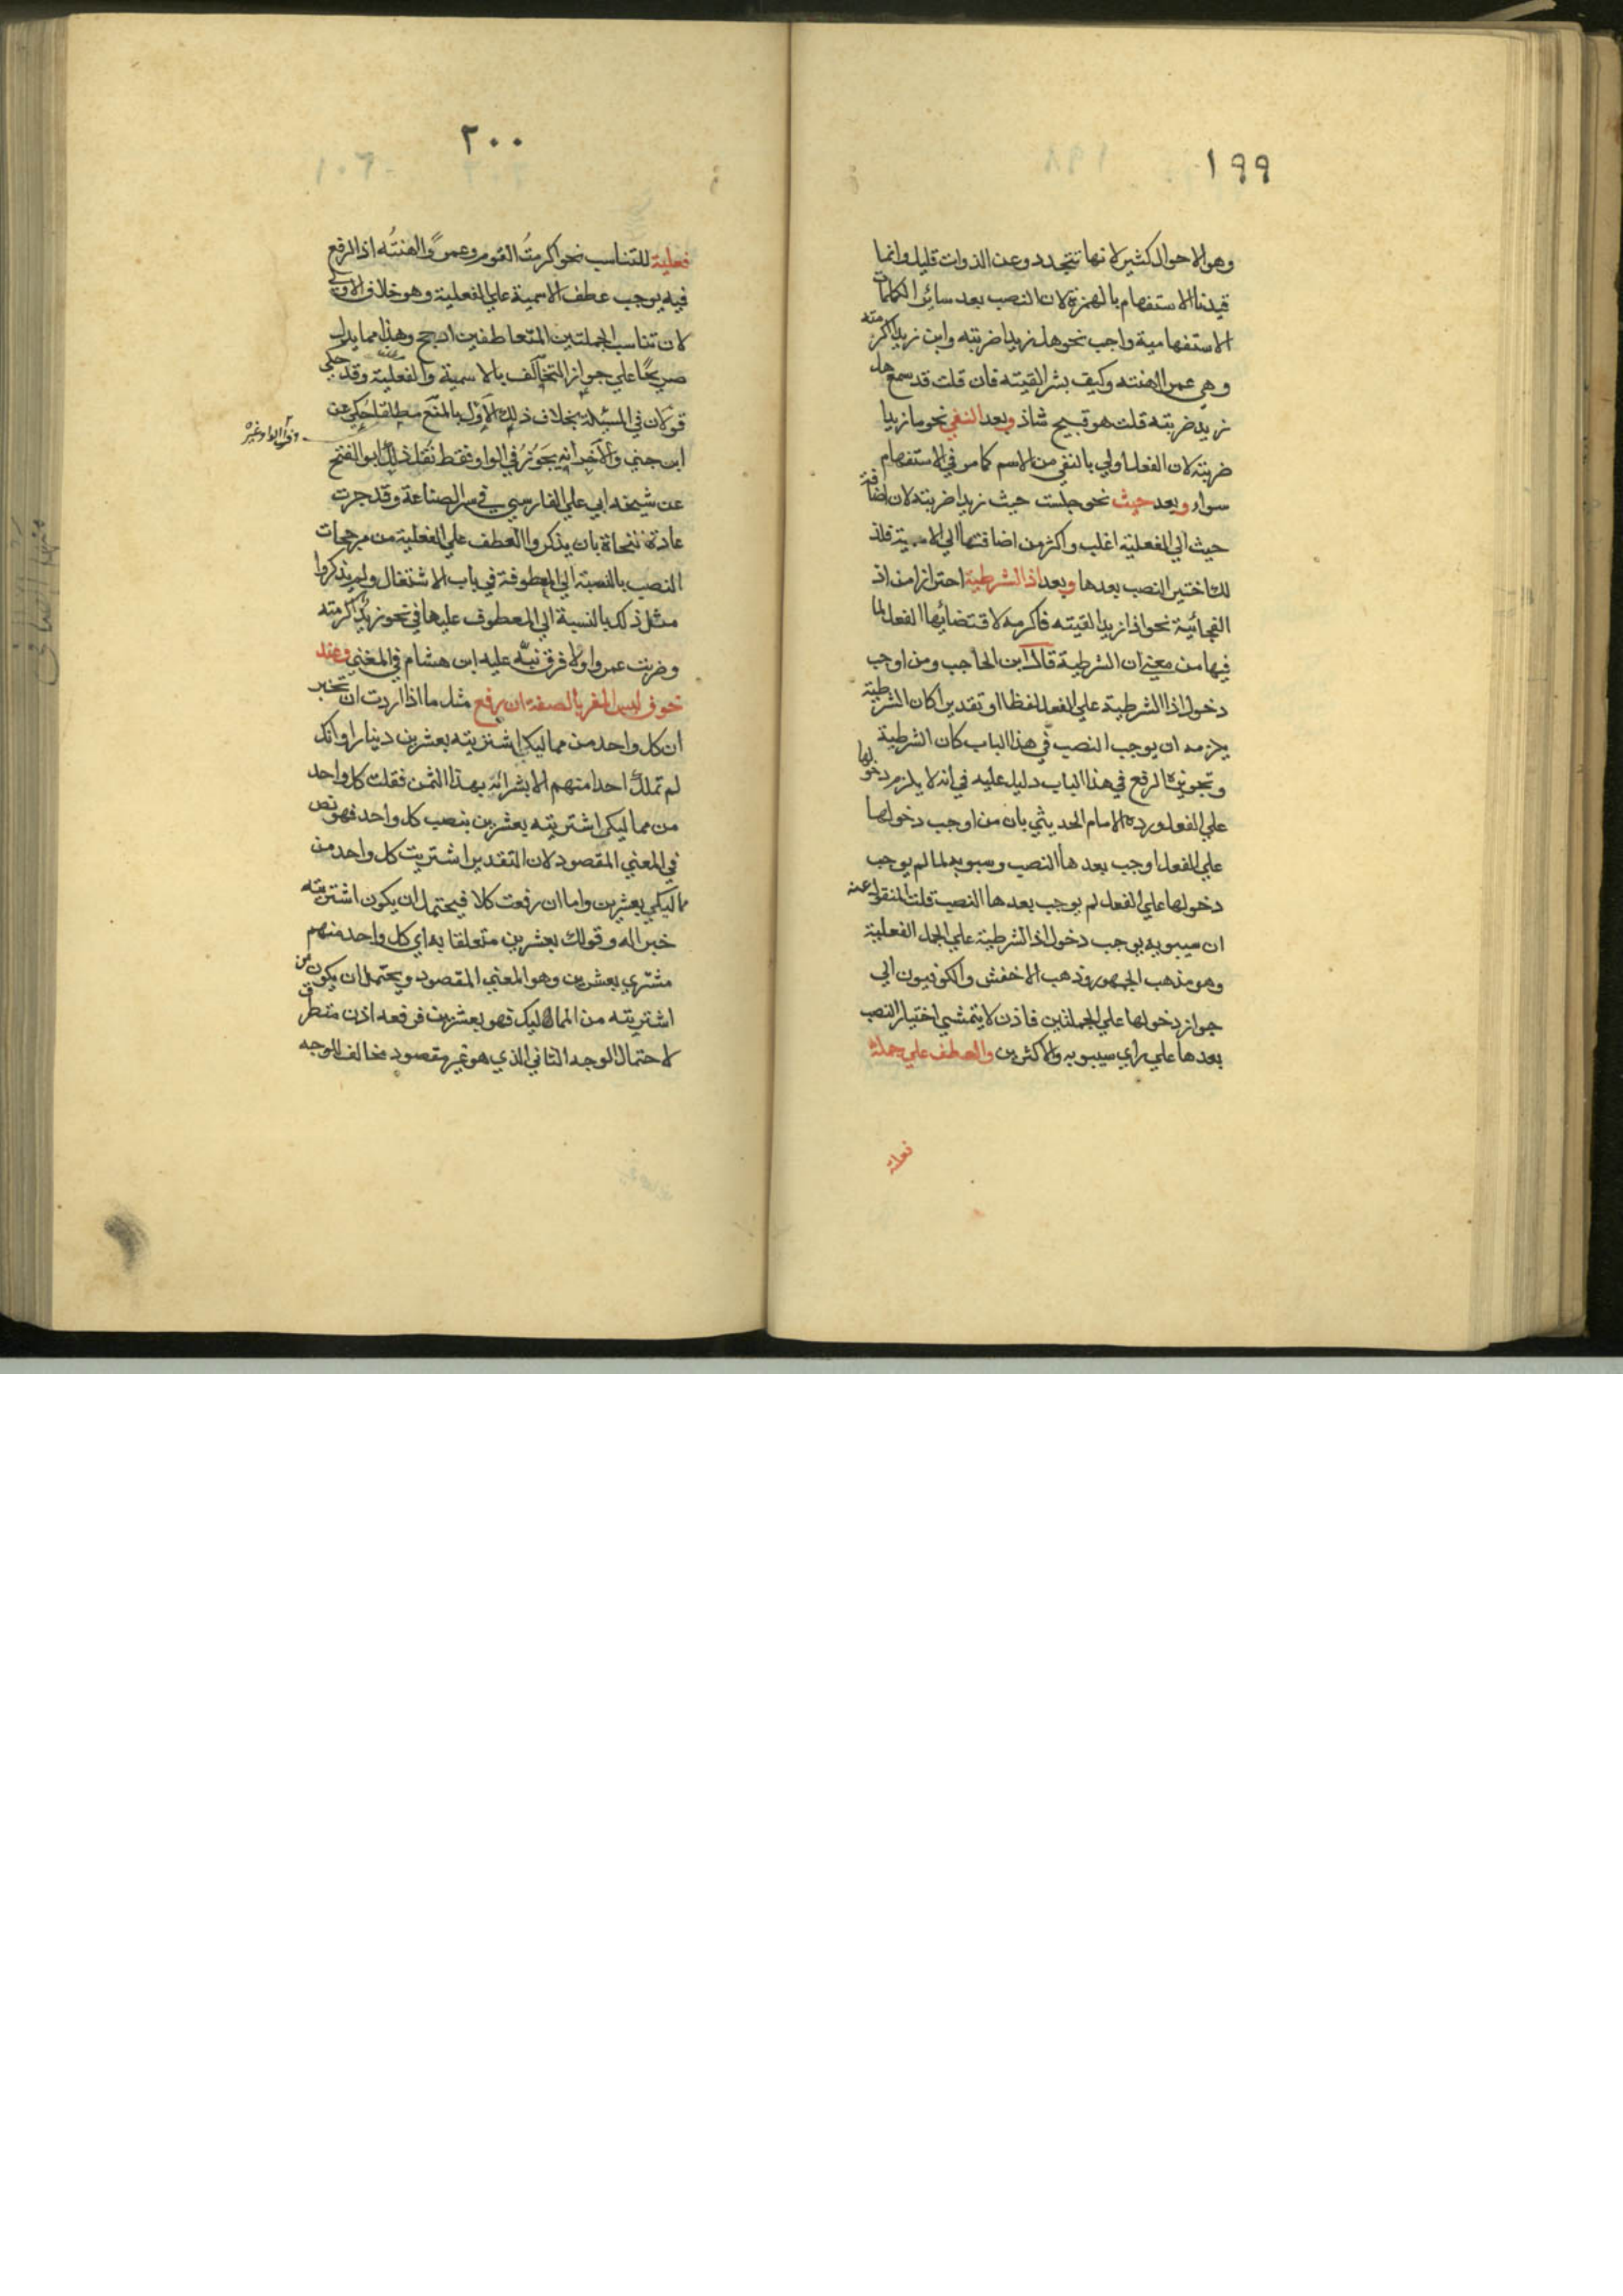 ١٩٩
وهو الاحوال كثير لانها تتجدد وعن الذوات قليل وانما
قيدنا الاستفهام بالهمزة لان النصب بعد سائر الكلمات
الاستفهامية واجب نحو هل زيدا ضربته واين زيدا اكرمته
وهي عمرا اهنته وكيف بشرا لقيته فان قلت قد سمع هل
زيد ضربته قلت هو قبيح شاذ وبعد النفي نحو ما زيدا
ضربته لان الفعل اولي بالنفي من الاسم كما مر في الاستفهام
سواء وبعد حيث نحو جلست حيث زيدا ضربته لان اضافة
حيث الي الفعلية اغلب واكثر من اضافتها الي الاسمية فلذ
لك اختير النصب بعدها وبعد اذا الشرطية احترازا من اذ
الفجائية نحو اذا زيدا لقيته فاكرمه لاقتضائها الفعل لما
فيها من معني ان الشرطية قال ابن الحاجب ومن اوجب
دخول اذا الشرطية علي الفعل لفظا او تقديرا كان الشرطية
يلزمه ان يوجب النصب في هذا الباب كان الشرطية
وتجويزه الرفع في هذا الباب دليل عليه في انه لا يلزم دخولها
علي الفعل ورده الامام الحديثي بان من اوجب دخولها
علي الفعل اوجب بعدها النصب وسيبويه لما لم يوجب
دخولها علي الفعل لم يوجب بعدها النصب قلت المنقول عنه
ان سيبويه يوجب دخول اذا الشرطية علي الجمل الفعلية
وهو مذهب الجمهور وذهب الاخفش والكوفيون الي
جواز دخولها علي الجملتين فاذن لا يتمشي اختيار النصب
بعدها علي راي سيبويه والاكثرين والعطف علي جملة
فعلية
٢٠٠
فعلية للتناسب نحو اكرمت القوم وعمرًا اهنتُه اذ الرفع
فيه يوجب عطف الاسمية علي الفعلية وهو خلاف الاولي
لان تناسب الجملتين المتعاطفين ارجح وهذا مما يدل
صريحًا علي جواز التخالف بالاسمية والفعلية وقد حكي
قولان في المسئلة بخلاف ذلك الاول بالمنع مطلقا حكي عن
ابن جني والآخر انه يجوز في الواو فقط نقل ذلك ابو الفتح
عن شيخه ابي علي الفارسي في سر الصناعة وقد جرت
عادة النحاة بان يذكروا العطف علي الفعلية من مرجحات
النصب بالنسبة الي المعطوفة في باب الاشتغال ولم يذكروا
مثل ذلك بالنسبة الي المعطوف عليها في نحو زيد اكرمته
وضربت عمروا ولا فرق نبّه عليه ابن هشام في المغني وعند
خوف لبس المفسر بالصفة ان رفع مثل ما اذا اردت ان تخبر
ان كل واحد من مماليكك اشتريته بعشرين دينارا وانك
لم تملك احدا منهم الا بشرائه بهذا الثمن فقلت كل واحد
من مماليكي اشتريته بعشرين بنصب كل واحد فهو نص
في المعني المقصود لان التقدير اشتريت كل واحد من
مماليكي بعشرين واما ان رفعت كلا فيحتمل ان يكون اشتريته
خبرا له وقولك بعشرين متعلقا به اي كل واحد منهم
مشتري بعشرين وهو المعني المقصود ويحتمل ان يكون من
اشتريته من المماليك فهو بعشرين فرفعه اذن متطرق
لاحتمال الوجه الثاني الذي هو غير مقصود مخالف للوجه